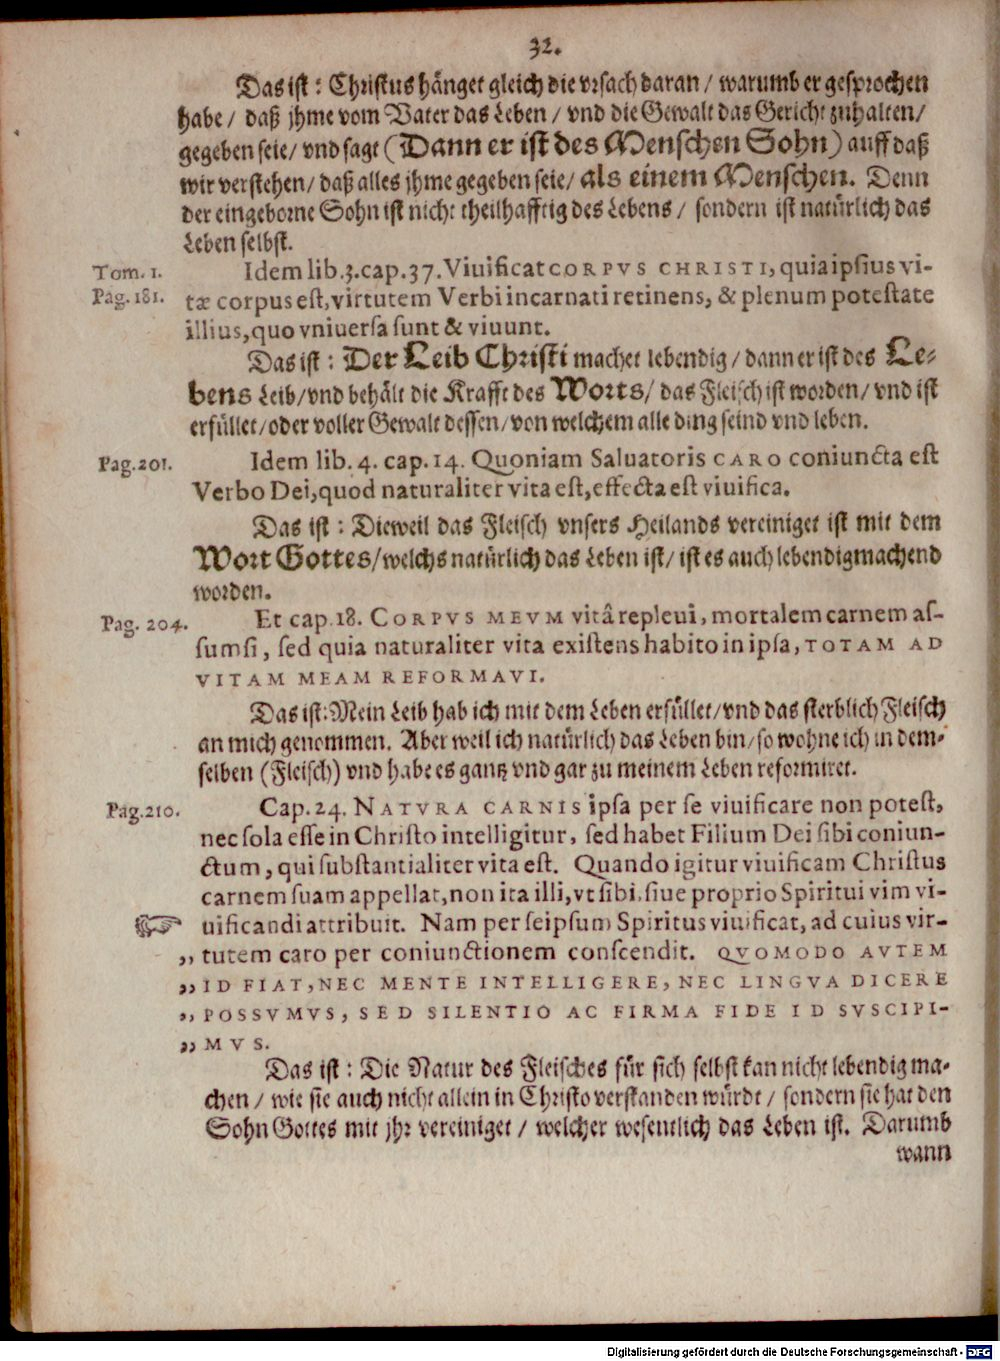 32.
Das ist : Christus hänget gleich die vrsach daran / warumb er gesprochen
habe / daß jhme vom Vater das Leben / vnd die Gewalt das Gericht zuhalten/
gegeben seie/ vnd sagt (Dann er ist des Menschen Sohn) auff daß
wir verstehen/ daß alles jhme gegeben seie/ als einem Menschen. Denn
der eingeborne Sohn ist nicht theilhafftig des Lebens / sondern ist natürlich das
Leben selbst.
Tom. 1. Idem lib.3.cap.37. Viuificat CORPVS CHRISTI, quia ipsius vi-
Pag. 181. tæ corpus est, virtutem Verbi incarnati retinens, & plenum potestate
illius, quo vniuersa sunt & viuunt.
Das ist : Der Leib Christi machet lebendig / dann er ist des Le-
bens Leib/ vnd behält die Krafft des Worts/ das Fleisch ist worden/ vnd ist
erfüllet/oder voller Gewalt dessen/ von welchem alle ding seind vnd leben.
Pag.201. Idem lib. 4. cap. 14. Quoniam Saluatoris CARO coniuncta est
Verbo Dei, quod naturaliter vita est, effecta est viuifica.
Das ist : Dieweil das Fleisch vnsers Heilands vereiniget ist mit dem
Wort Gottes/welchs natürlich das Leben ist/ ist es auch lebendigmachend
worden.
Pag. 204. Et cap. 18. CORPVS MEVM vitâ repleui, mortalem carnem as-
sumsi, sed quia naturaliter vita existens habito in ipsa, TOTAM AD
VITAM MEAM REFORMAVI.
Das ist: Mein Leib hab ich mit dem Leben erfüllet/vnd das sterblich Fleisch
an mich genommen. Aber weil ich natürlich das Leben bin/ so wohne ich in dem-
selben (Fleisch) vnd habe es gantz vnd gar zu meinem Leben reformiret.
Pag.210. Cap. 24. NATVRA CARNIS ipsa per se viuificare non potest,
nec sola esse in Christo intelligitur, sed habet Filium Dei sibi coniun-
ctum, qui substantialiter vita est. Quando igitur viuificam Christus
carnem suam appellat, non ita illi, vt sibi, siue proprio Spiritui vim vi-
☞ uificandi attribuit. Nam per seipsum Spiritus viuificat, ad cuius vir-
„ tutem caro per coniunctionem conscendit. QVOMODO AVTEM
„ ID FIAT, NEC MENTE INTELLIGERE, NEC LINGVA DICERE
„ POSSVMVS, SED SILENTIO AC FIRMA FIDE ID SVSCIPI-
„ MVS.
Das ist : Die Natur des Fleisches für sich selbst kan nicht lebendig ma-
chen / wie sie auch nicht allein in Christo verstanden würdt / sondern sie hat den
Sohn Gottes mit jhr vereiniget / welcher wesentlich das Leben ist. Darumb
wann
Digitalisierung gefördert durch die Deutsche Forschungsgemeinschaft - DFG